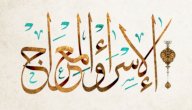 الإسراء والمعراج